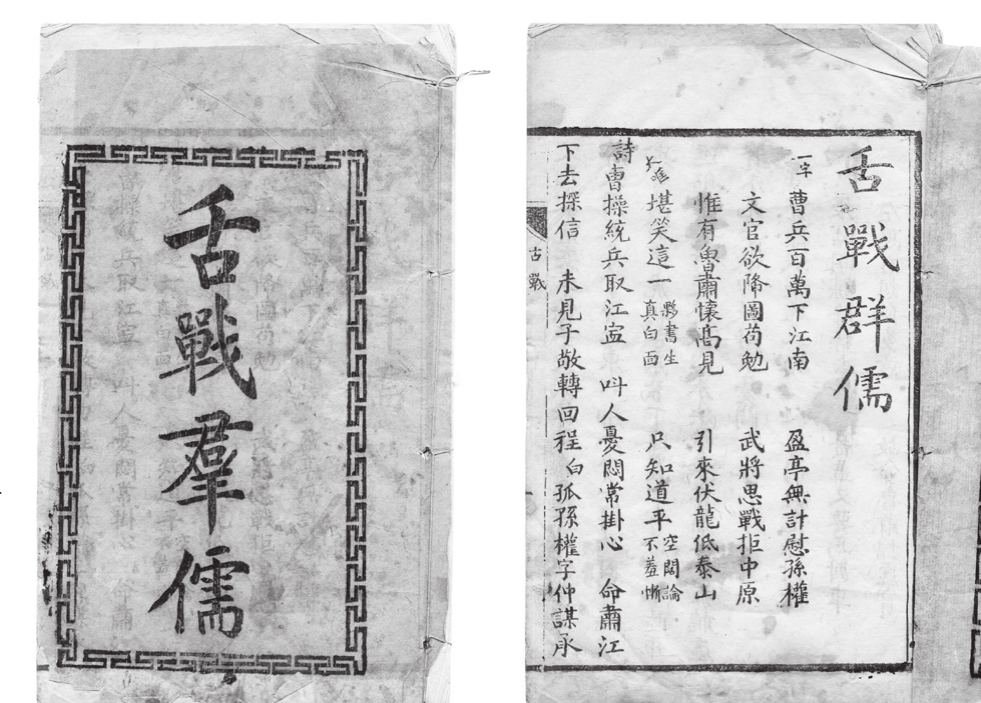 舌戰羣儒
舌戰群儒
一字 曹兵百萬下江南 盈亭無計慰孫權
文官欲降圖苟勉 武將思戰拒中原
惟有魯肅懷高見 引來伏龍低泰山
堪笑這一夥書生真白面 只知道平空闊論不羞慚
詩曹操統兵取江寍 叫人憂悶常掛心 命肅江
下去探信 未見子敬轉回程 白孤孫權字仲謀承
舌戰